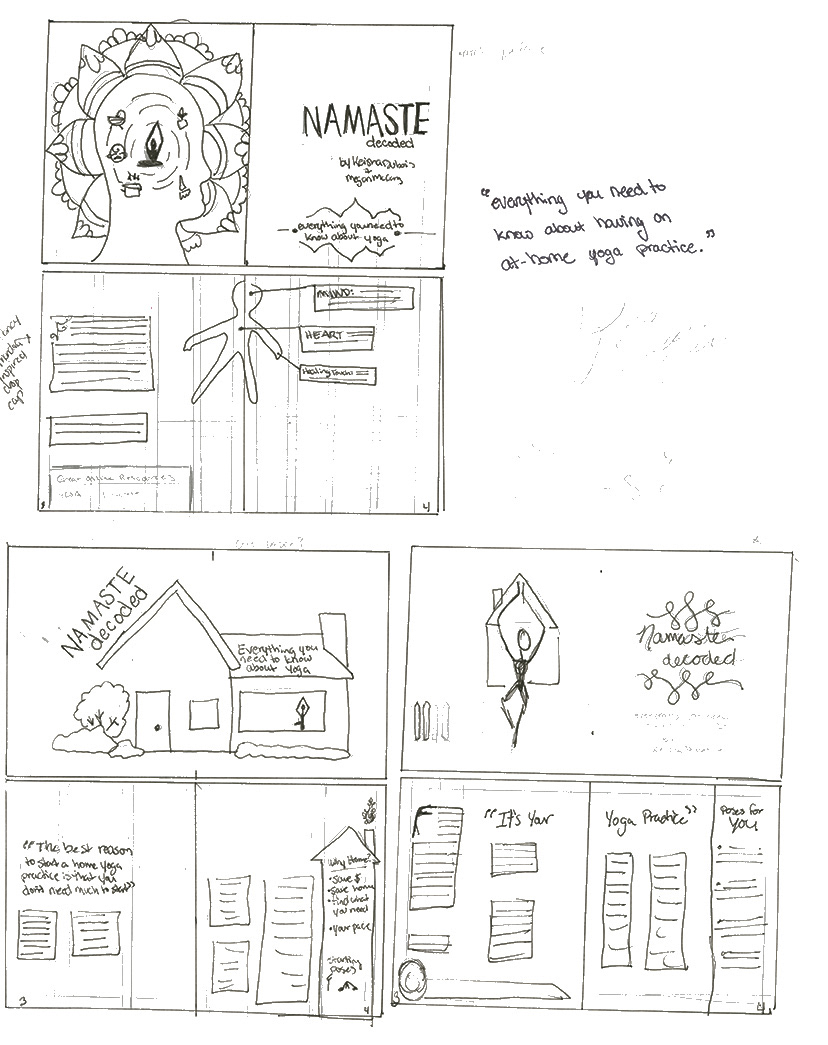 NAMASTE
decoded
by
everything you need to
know about yoga
"everything you need to
know about having an
at-home yoga practice."
MIND:
HEART
Healing Touch:
drop
cap
Great online Resources
3
4
NAMASTE
decoded
Everything you
need to know
about yoga
Namaste
decoded
"The best reason
to start a home yoga
practice is that you
don't need much to start"
Why Home?
•save $
•save home
•find what
you need
•your pace
starting
poses
3
4
"It's Your
Yoga Practice"
Poses for
YOU
3
4